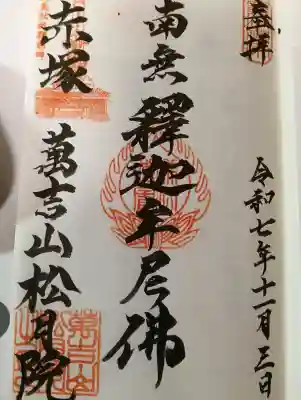 奉拝
令和七年十一月三日
南無釋迦牟尼佛
赤塚
萬吉山松月院